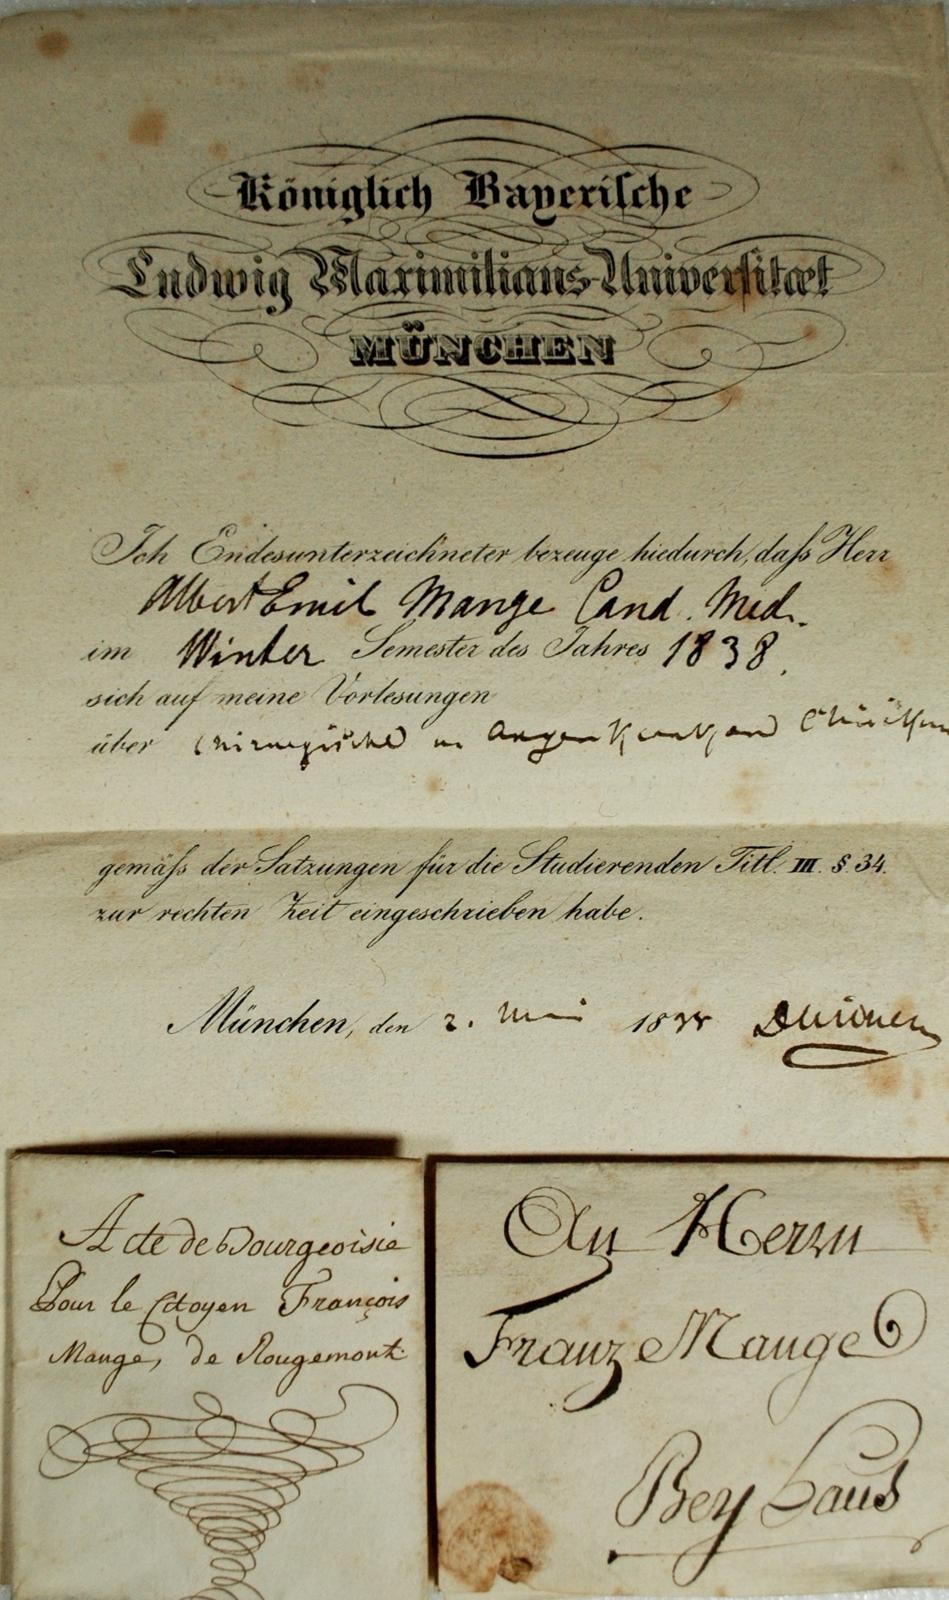 Königlich Bayerische
Ludwig Maximilians-Universitæt
MÜNCHEN
Ich Endesunterzeichneter bezeuge hiedurch, daſs Herr
Albert Emil Mange Cand. Med.
im Winter Semester des Jahres 1838.
sich auf meine Vorlesungen
über
gemäſs der Satzungen für die Studierenden Titl. III. § 34.
zur rechten Zeit eingeschrieben habe.
München, den 2. Mai 18
Acte de Bourgeoisie
Pour le Citoyen François
Mange, de Rougemont
An Herrn
Franz Mange
Bey Haus